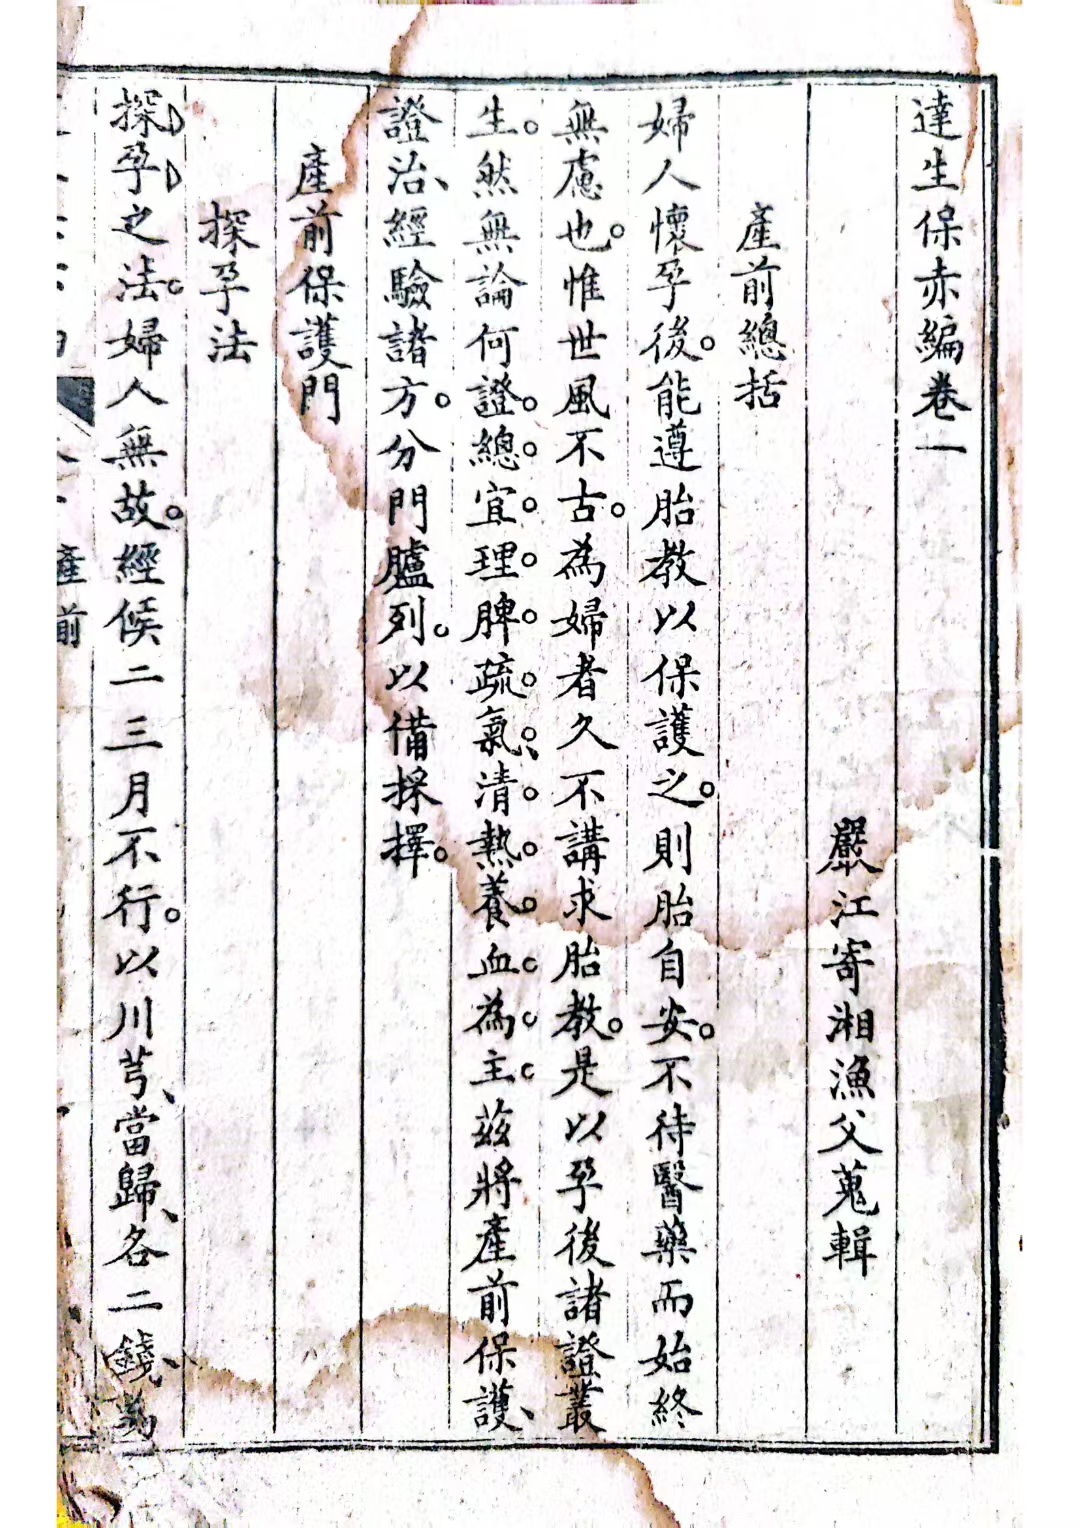 達生保赤編卷一
嚴江寄湘漁父蒐輯
產前總括
婦人懷孕後。能遵胎教以保護之。則胎自安。不待醫藥而始終
無慮也。惟世風不古。為婦者久不講求胎教。是以孕後諸證叢
生。然無論何證。總宜理脾疏氣、清熱養血為主。茲將產前保護、
證治、經驗諸方。分門臚列。以備採擇。
產前保護門
探孕法
探孕之法。婦人無故。經候二三月不行。以川芎、當歸、各二錢、為
產前